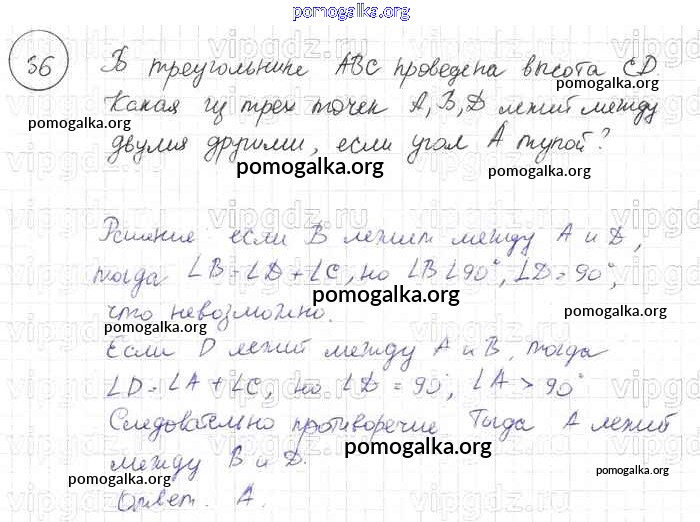 pomogalka.org
36 В треугольнике ABC проведена высота CD.
pomogalka.org
Какая из трех точек A, B, D лежит между
pomogalka.org
двумя другими, если угол A тупой?
pomogalka.org
pomogalka.org
Решение: если B лежит между A и D,
pomogalka.org
тогда ∠B = ∠D + ∠C, но ∠B < 90°, ∠D = 90°,
pomogalka.org
что невозможно.
pomogalka.org
Если D лежит между A и B, тогда
pomogalka.org
∠D = ∠A + ∠C, но ∠D = 90°, ∠A > 90°
Следовательно противоречие Тогда A лежит
pomogalka.org
между B и D.
pomogalka.org
pomogalka.org
Ответ. A.
vipgdz.ru